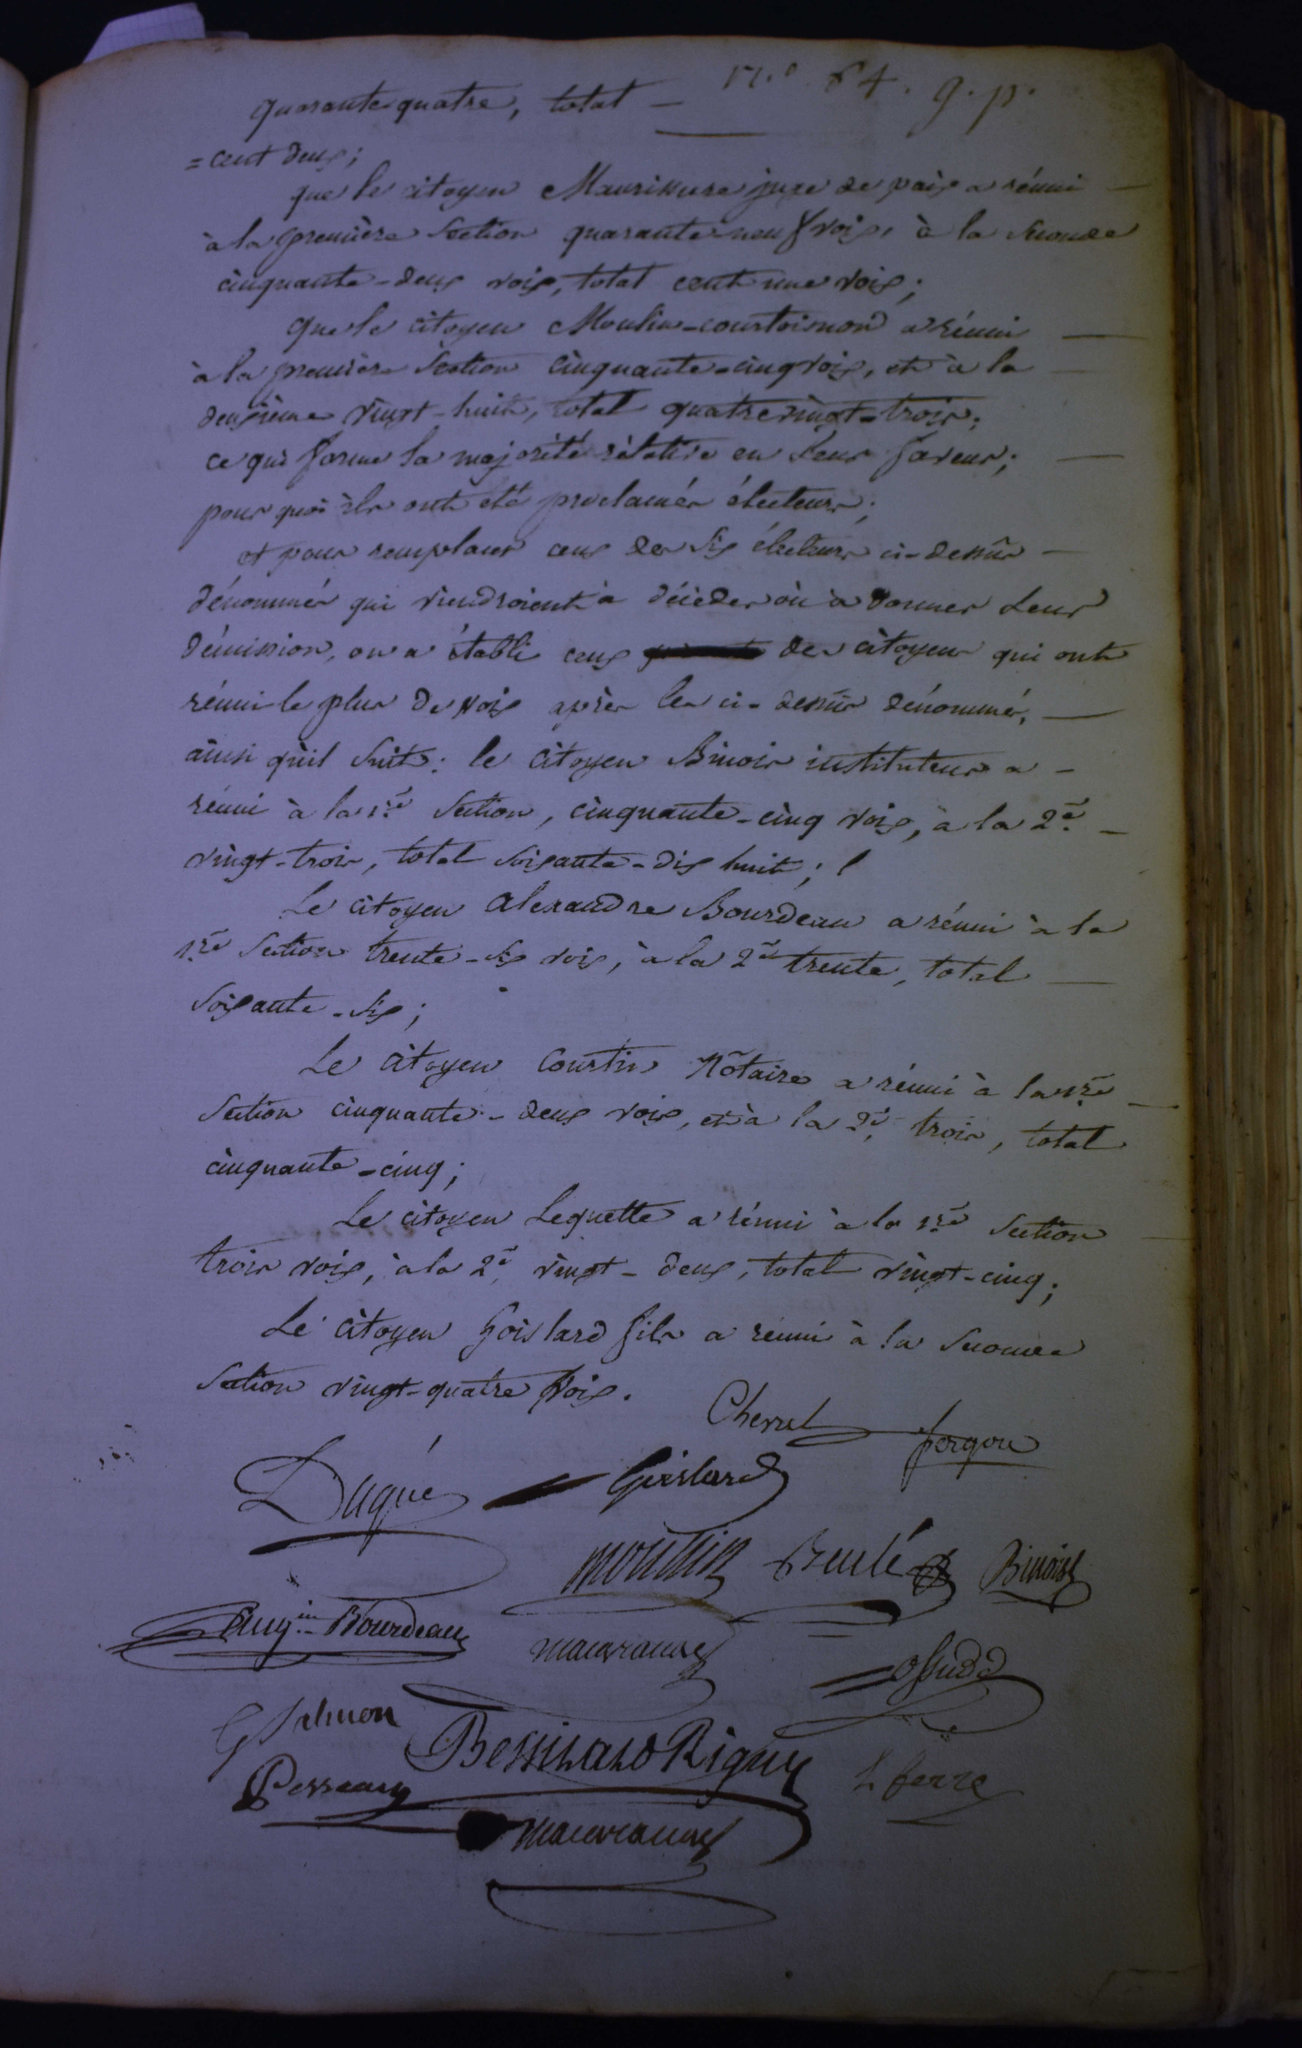 n.º 64. g. p.
quarante quatre, total —
= cent deux;
que le citoyen juge de paix a réuni —
à la première Section quarante neuf voix, à la seconde
cinquante-deux voix, total cent une voix;
que le citoyen Moulin-courtoimon a réuni —
à la première Section cinquante-cinq voix, et à la —
deuxième vingt-huit, total quatrevingt-trois;
ce qui forme la majorité rélative en Leur faveur; —
pour quoi ils ont eté proclamés électeurs;
et pour remplacer ceux des Six électeurs ci-dessus —
dénommés qui viendroient à décéder où à donner Leur
démission, on a établi ceux des citoyens qui ont
réuni le plus de voix après les ci-dessus dénommés, —
ainsi qu'il Suit: le citoyen Binois instituteur a —
réuni à la 1.re Section, cinquante-cinq voix, à la 2.e —
vingt-trois, total soixante-dix huit;
Le citoyen Alexandre Bourdeau a réuni à la
1.re Section trente-six voix, à la 2.e trente, total —
soixante-six;
Le citoyen Courtin Nôtaire a réuni à la 1.re —
Section cinquante-deux voix, et à la 2.e trois, total
cinquante-cinq;
Le citoyen Lequette a réuni à la 1.re Section —
trois voix, à la 2.e vingt-deux, total vingt-cinq;
Le citoyen Goislard fils a réuni à la seconde
Section vingt-quatre voix.
Chevul
Dugué Goislard
moullin Beulé Binois
Bourdeau
G Salmon
Rigny